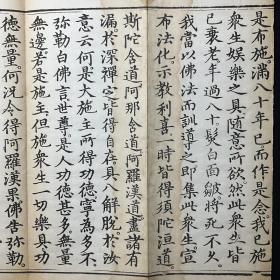 是布施滿八十年已而作是念我已施
衆生娛樂之具隨意所欲然此衆生皆
已衰老年過八十髮白面皺將死不久
我當以佛法而訓導之即集此衆生宣
布法化示教利喜一時皆得須陀洹道
斯陀含道阿那含道阿羅漢道盡諸有
漏於深禪定皆得自在具八解脫於汝
意云何是大施主所得功德寧爲多不
彌勒白佛言世尊是人功德甚多無量
無邊若是施主但施衆生一切樂具功
德無量何況令得阿羅漢果佛告彌勒